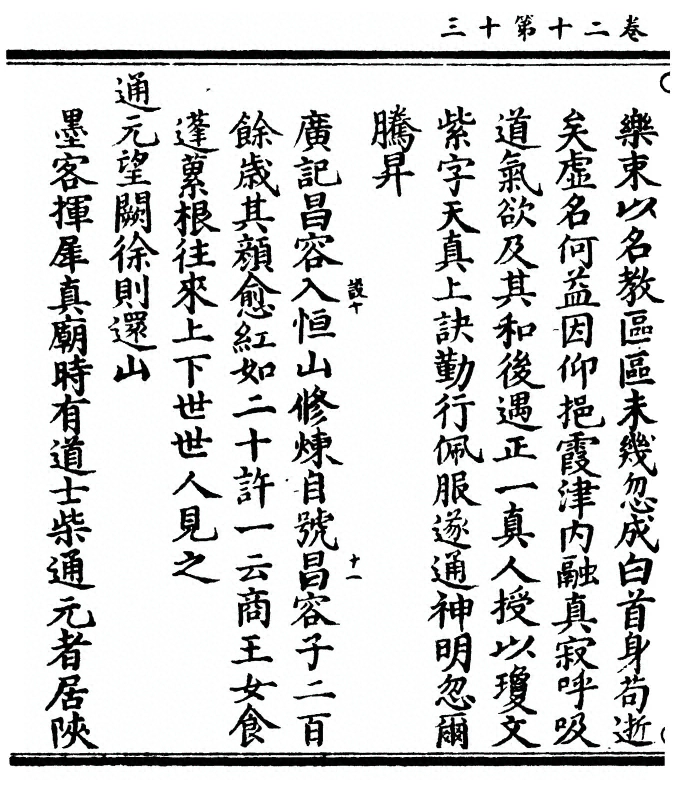 卷二十第十三
樂東以名教區區未幾忽成白首身苟逝
矣虛名何益因仰挹霞津内融真寂呼吸
道氣欲及其和後遇正一真人授以瓊文
紫字天真上訣勤行佩服遂通神明忽爾
騰昇
廣記昌容入恒山修煉自號昌容子二百
餘歲其顔愈紅如二十許一云商王女食
蓬蔂根往來上下世世人見之
通元望闕徐則還山
墨客揮犀真廟時有道士柴通元者居陝
十一